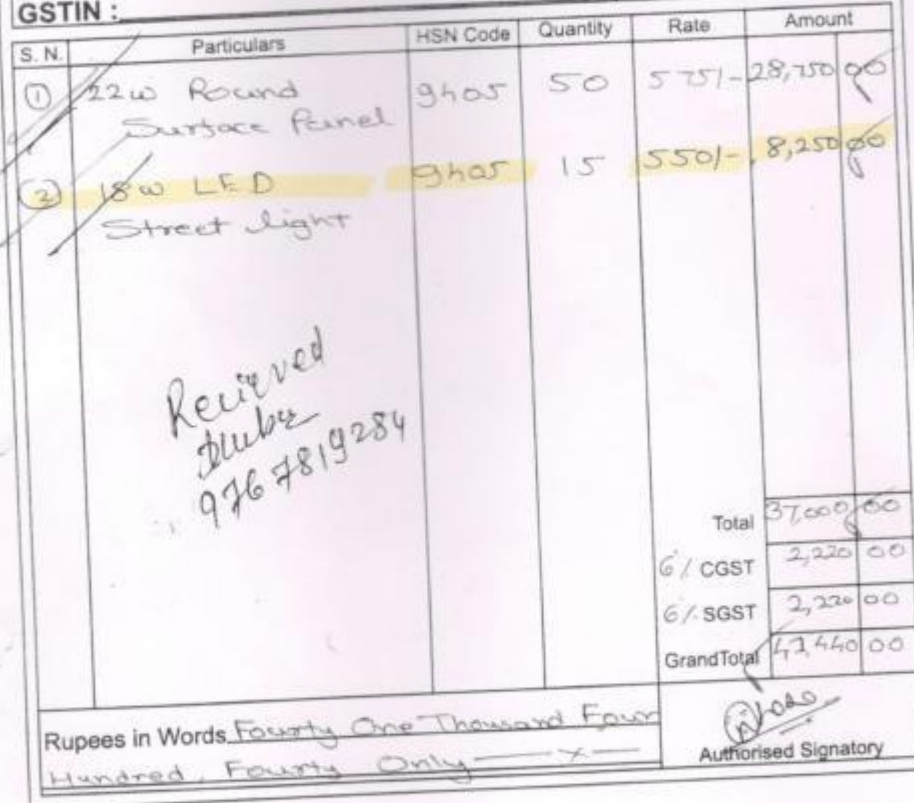 GSTIN :
S. N. Particulars HSN Code Quantity Rate Amount
① 22w Round 9405 50 575/- 28,750 00
Surface Panel
② 18w LED 9405 15 550/- 8,250 00
Street light
Recieved
9767819284
Total 37,000 00
6% CGST 2,220 00
6% SGST 2,220 00
GrandTotal 41,440 00
Rupees in Words Fourty One Thousand Four
Hundred, Fourty Only —x—
Authorised Signatory